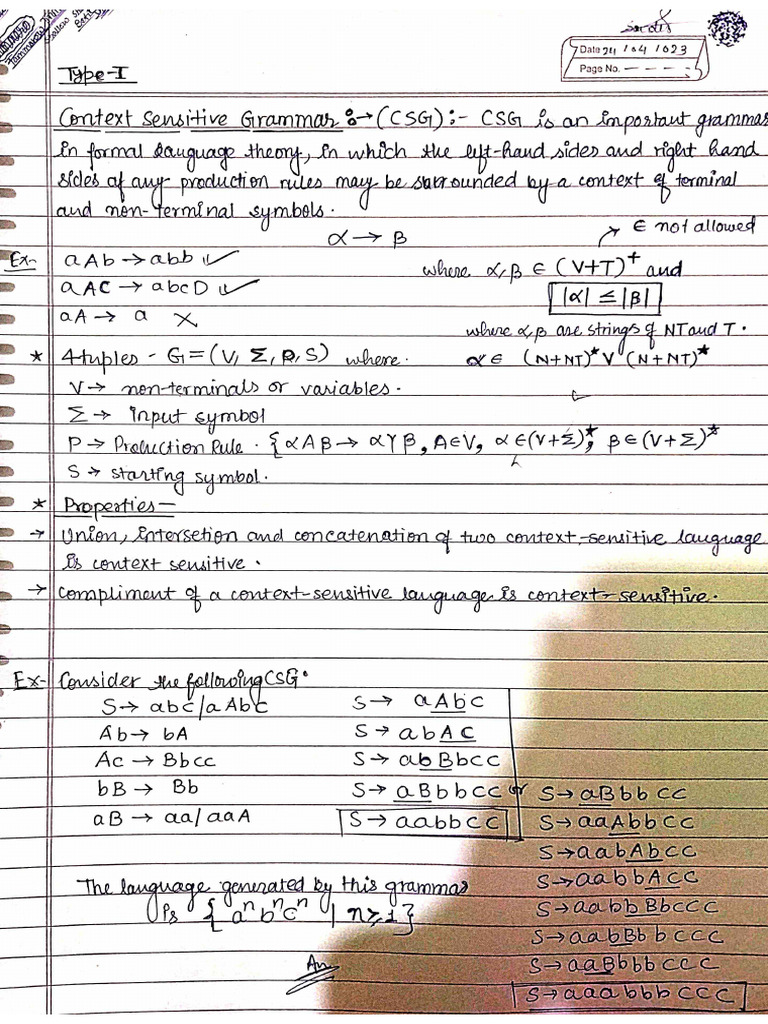 Date 24/04/023
Page No.
Type-I
Context Sensitive Grammar :→ (CSG) :- CSG is an important grammar
in formal language theory, in which the left-hand sides and right hand
sides of any production rules may be surrounded by a context of terminal
and non-terminal symbols.
α → β
∈ not allowed
Ex- aAb → abb ✓
where α, β ∈ (V+T)⁺ and
aAC → abcD ✓
|α| ≤ |β|
aA → a ✗
where α, β are strings of NT and T.
* 4 tuples - G = (V, Σ, P, S) where.
α ∈ (N+NT)* V (N+NT)*
V → non-terminals or variables.
Σ → input symbol
P → Production Rule. {αAβ → αγβ, A∈V, α∈(V+Σ)*, β∈(V+Σ)*
S → starting symbol.
* Properties-
→ Union, intersetion and concatenation of two context-sensitive language
is context sensitive.
→ Compliment of a context-sensitive language is context-sensitive.
Ex- Consider the following CSG.
S → abc/aAbc
Ab → bA
Ac → Bbcc
bB → Bb
aB → aa/aaA
S → aAbc
S → abAc
S → abBbcc
S → aBbbcc or
S → aabbcc
S → aBbbcc
S → aaAbbcc
S → aabAbcc
S → aabbAcc
S → aabbBbccc
S → aabBbbccc
S → aaBbbbccc
S → aaabbbccc
The language generated by this grammar
is {aⁿbⁿcⁿ | n≥1}
An